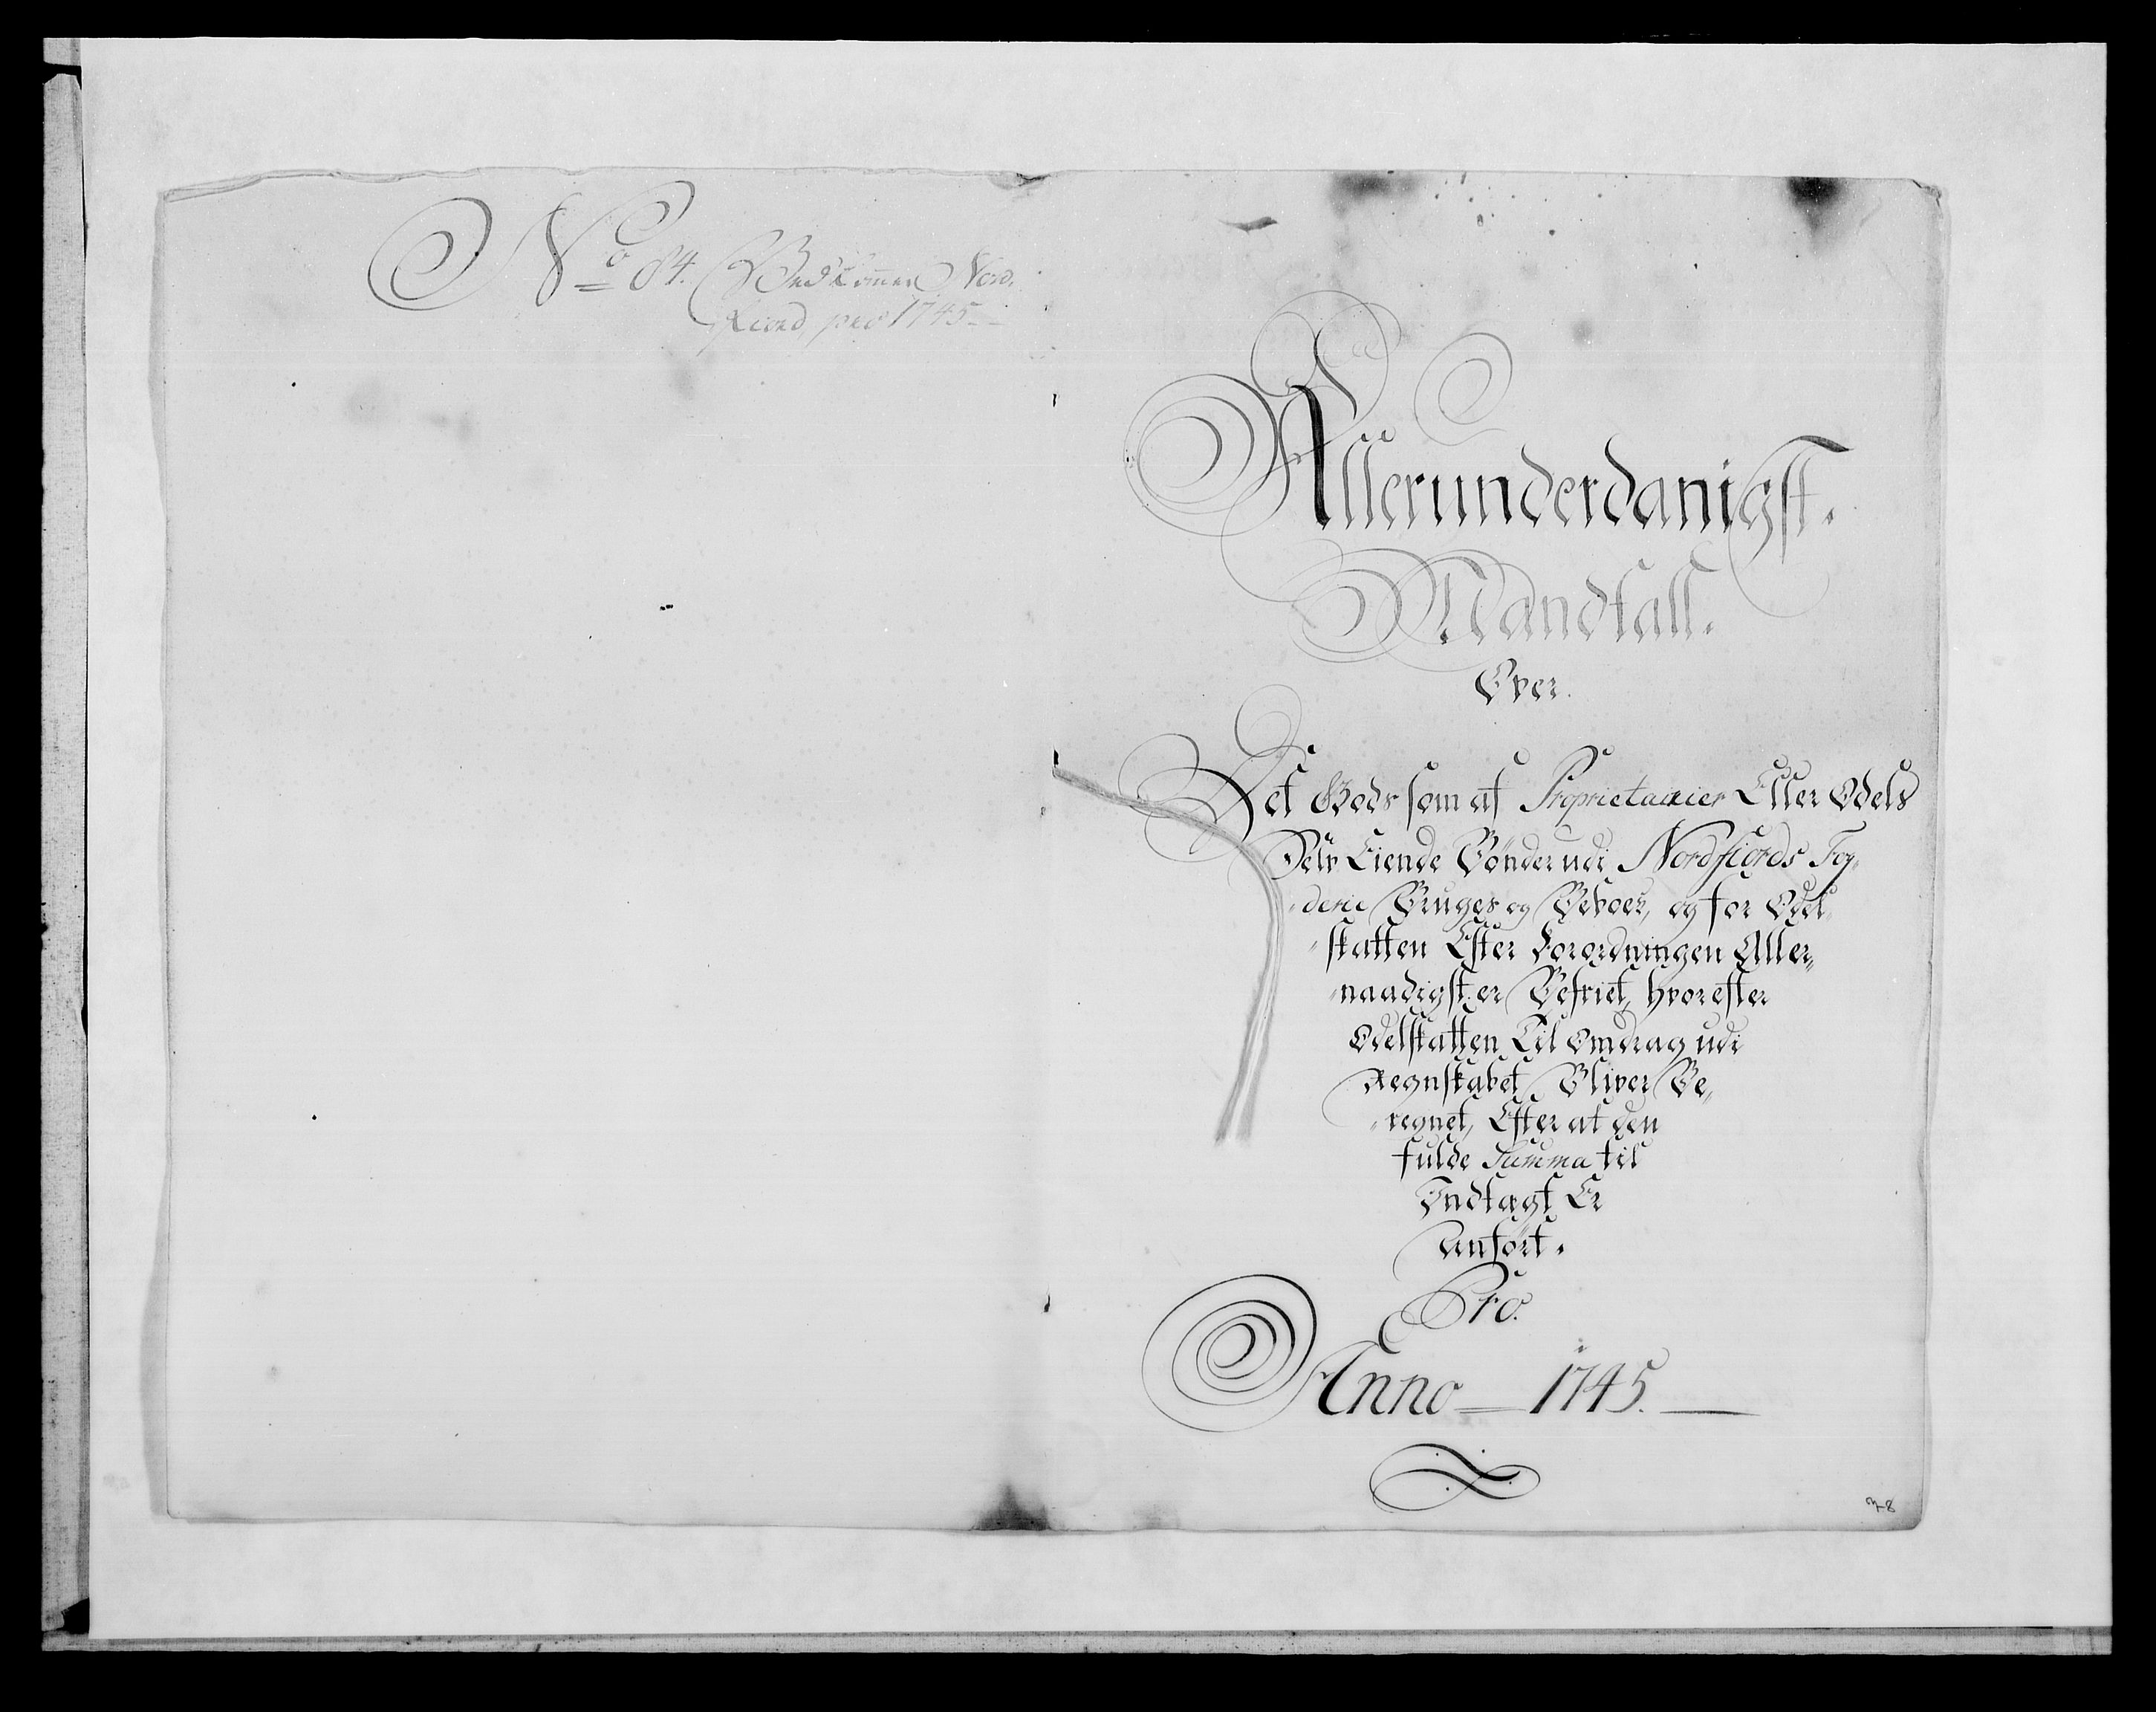 No 84. Vedkommer Nord,
fiord pro 1745
Allerunderdanigst.
Mandtall.
Over.
Det Gods som af Proprietairier Eller Odels
Selv Eiende Bönder udi Nordfiords Fog,,
,,derie Bruges og Beboes, og for Odel
,,skatten Efter Forordningen Aller,,
,,naadigst er Befriet, hvorefter
Odelskatten Til Omdrag udi
Regnskabet Bliver Be,,
,,regnet, Efter at den
fulde Summa til
Indtægt Er
Anfört.
Pro.
Anno 1745.